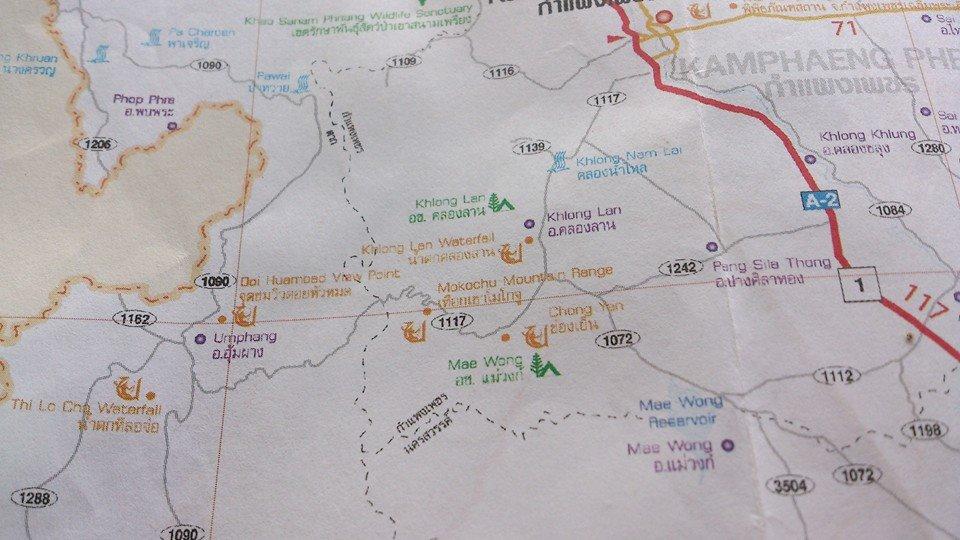 Khao Sanam Phriang Wildlife Sanctuary
เขตรักษาพันธุ์สัตว์ป่าเขาสนามเพรียง
กำแพงเพชร
71
KAMPHAENG PHE
กำแพงเพชร
Pa Charoen
พาเจริญ
1090
1109
1116
Pawai
ป่าหวาย
Phop Phra
อ.พบพระ
1206
กำแพงเพชร
ตาก
1117
1139
Khlong Nam Lai
คลองน้ำไหล
Khlong Khlung
อ.คลองขลุง
Sai
1280
A-2
1084
Khlong Lan
อช. คลองลาน
Khlong Lan
อ.คลองลาน
Khlong Lan Waterfall
น้ำตกคลองลาน
1242
Pang Sila Thong
อ.ปางศิลาทอง
1
117
1090
Doi Huamoao View Point
จุดชมวิวดอยหัวหมด
Mokochu Mountain Range
เทือกเขาโมโกจู
1162
Umphang
อ.อุ้มผาง
1117
Chong Yen
ช่องเย็น
1072
Mae Wong
อช. แม่วงก์
1112
Thi Lo Cho Waterfall
น้ำตกทีลอจ่อ
กำแพงเพชร
นครสวรรค์
Mae Wong
Reservoir
1198
Mae Wong
อ.แม่วงก์
1288
1090
3504
1072